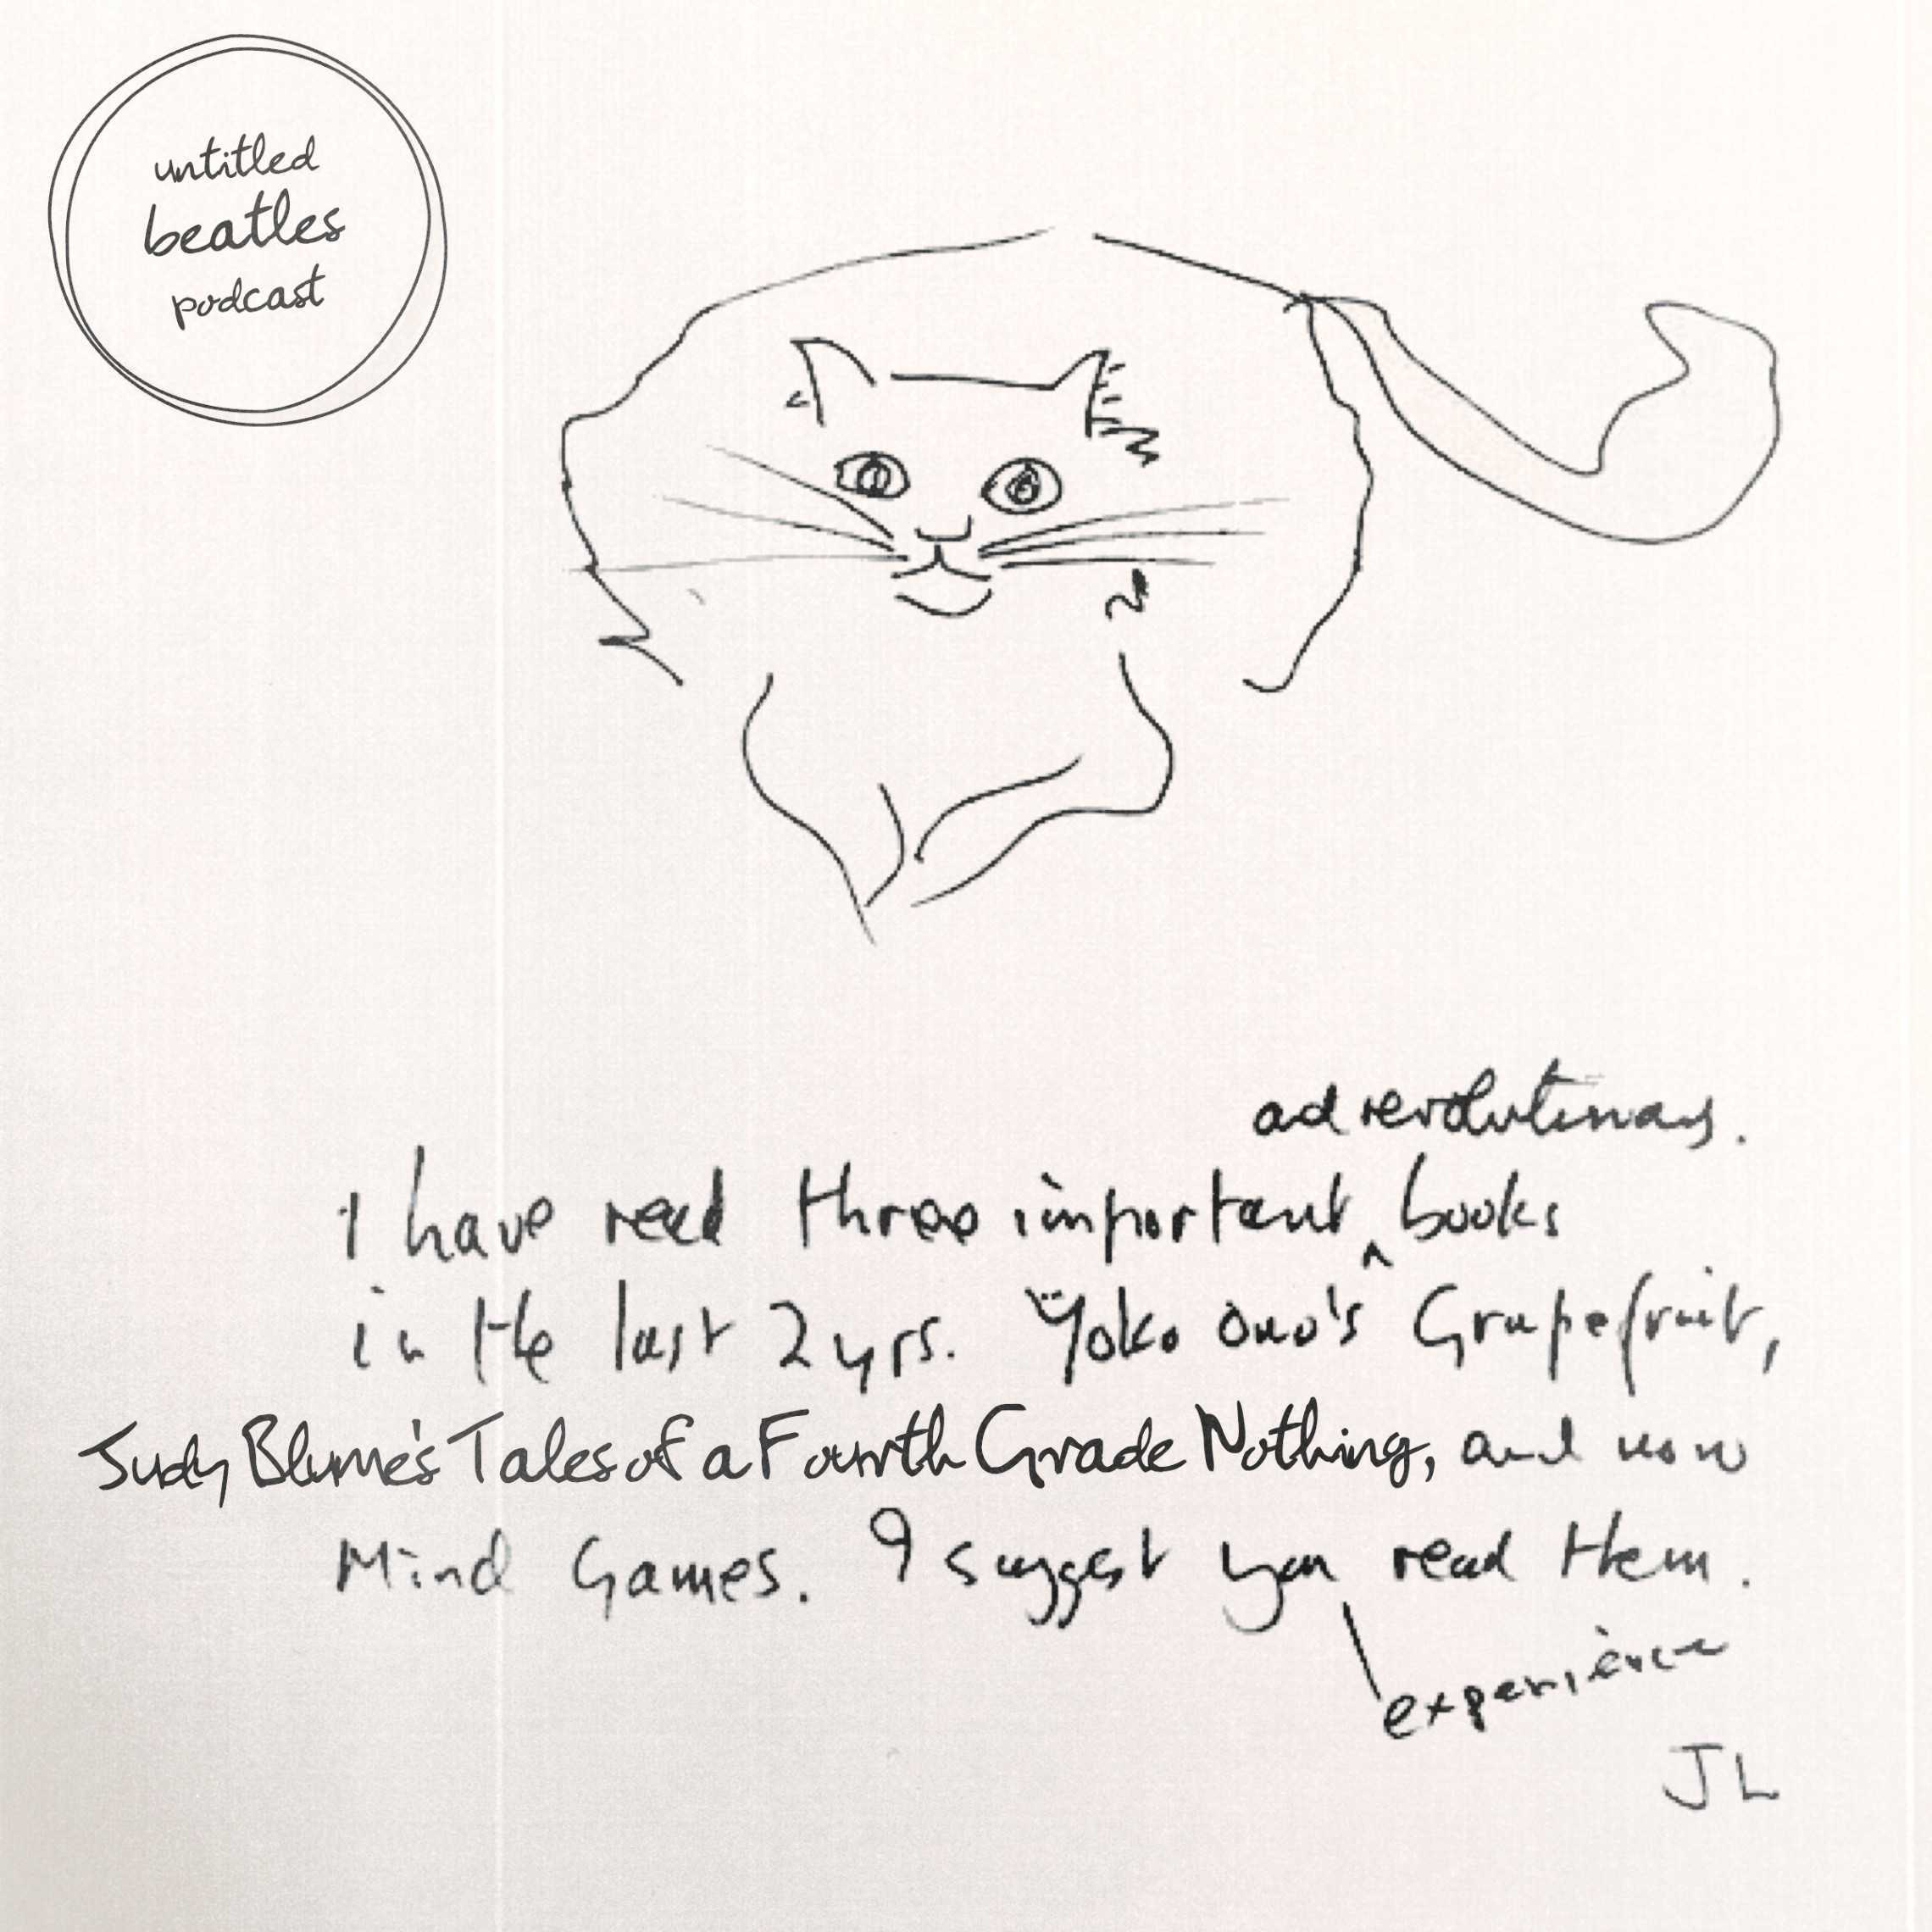 untitled
beatles
podcast
ad revolutionary.
I have read three important ^ books
in the last 2 yrs. Yoko Ono's Grapefruit,
Judy Blume's Tales of a Fourth Grade Nothing, and now
Mind Games. I suggest you read them.
experience
JL